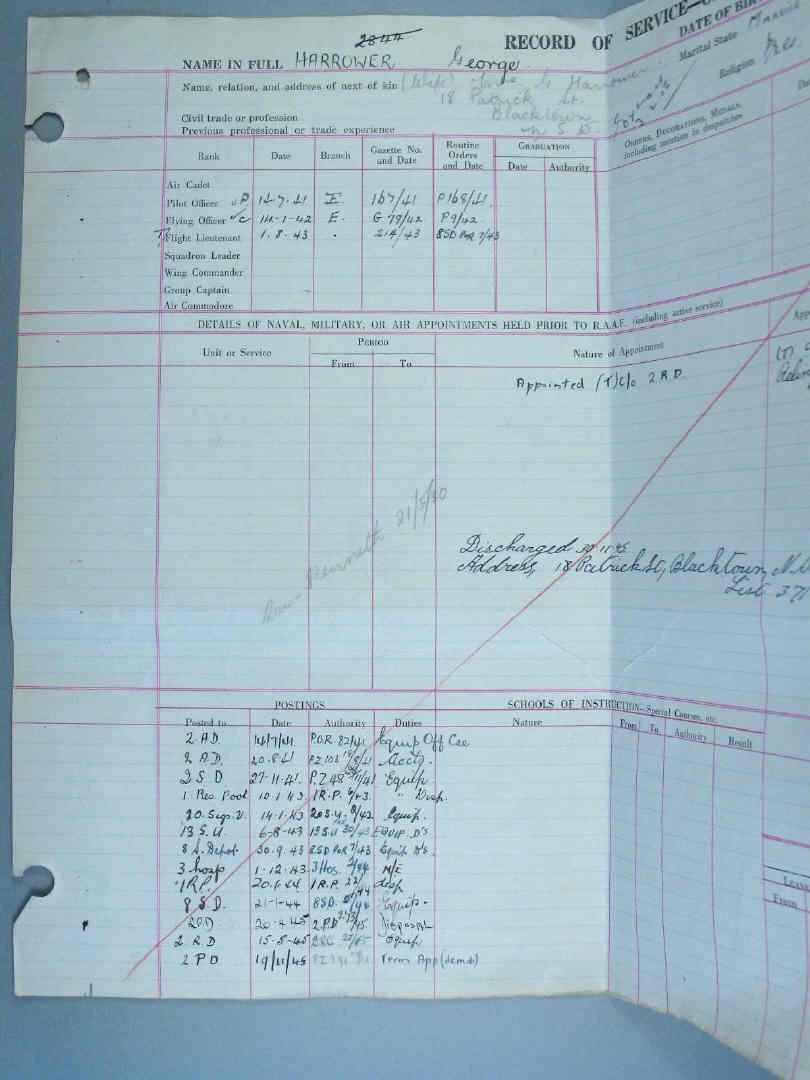 2844
RECORD OF SERVICE—
DATE OF BIR
NAME IN FULL HARROWER George.
Marital State
Religion Pres
Name, relation, and address of next of kin (Wife) Harrower.
18 Patrick St.
Civil trade or profession Blacktown
Previous professional or trade experience N.S.W.
ORDERS, DECORATIONS, MEDALS,
including mention in despatches
Rank Date Branch Gazette No. and Date Routine Orders and Date GRADUATION
Date Authority
Air Cadet
Pilot Officer P 14-7-41 E 167/41 P168/41.
Flying Officer C 14-1-42 E. G 79/42 P9/42
T/Flight Lieutenant 1.8.43 . 214/43 8SD POR 7/43
Squadron Leader
Wing Commander
Group Captain
Air Commodore
DETAILS OF NAVAL, MILITARY, OR AIR APPOINTMENTS HELD PRIOR TO R.A.A.F. (including active service)
Unit or Service Period Nature of Appointment
From To
Appointed (T) c/o 2 R D.
Kenneth 21/5/40
Discharged 30.11.45
Address, 18 Patrick St, Blacktown,
List 37
POSTINGS SCHOOLS OF INSTRUCTION—Special Courses, etc.
Posted to Date Authority Duties Nature From To Authority Result
2 A.D. 14/7/41 P.O.R. 82/41 Equip Off Cse
2 A.D. 20.8.41 Accts.
2 S.D. 27-11-41. Equip
1 Res. Pool 10.1.43 1R.P. 6/43. " Disp.
20. Sup. U. 14.1.43 Equip.
13 S.U. 6-8-43 13 S.U 30/43 EQUIP. D's.
8 S. Depot 30.9.43 8SD POR 7/43 Equip D's.
3 hosp 1-12-43. 3 Hos. N/E
1 R.P. 20.1.44 1 R.P. 22/44 disp
8 S.D. 21-1-44 8SD. Equip.
2PD 20-4-45 2.PD Disposal
2 R D 15-8-45 Equip
2 P D 19/11/45 Term App (demob)
Leave
From